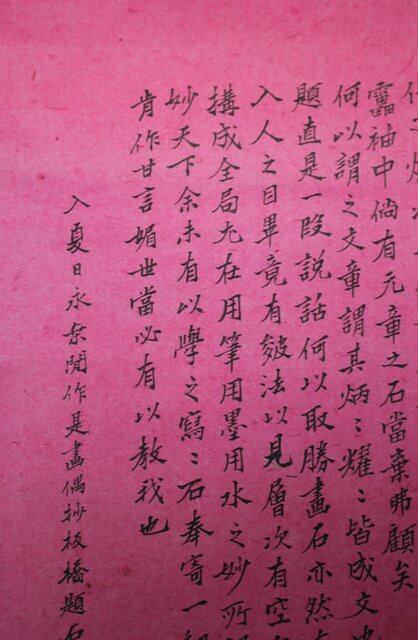 靁袖中倘有元章之石當棄弗顧矣
何以謂之文章謂其炳〻耀〻皆成文
題直是一段說話何以取勝畫石亦然
入人之目畢竟有皴法以見層次有空
搆成全局尤在用筆用墨用水之妙所
妙天下余未有以學之寫二石奉寄一
肯作甘言媚世當必有以教我也
入夏日永乘閒作是畫偶抄板橋題石